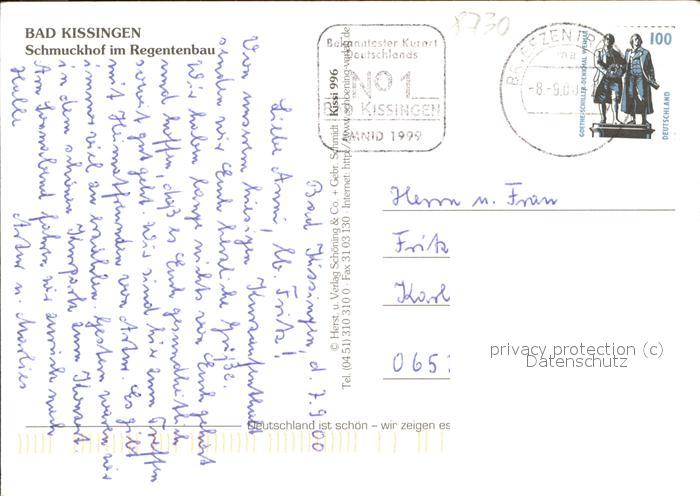 BAD KISSINGEN
Schmuckhof im Regentenbau
Bad Kissingen, d. 7.9.00
Liebe Anni, lb. Fritz!
Von unserm hiesigen Kuraufenthalt
senden wir Euch herzliche Grüße.
Wir haben lange nichts von Euch gehört
und hoffen, daß es Euch gesundheitlich
gut geht. Wir sind hier zum Treffen
mit Heimatfreunden von Artur. Es gibt
immer viel zu erzählen. Gestern waren wir
in dem schönen Kurpark zum Konzert.
Am Sonnabend fahren wir zurück nach
Halle
Artur u. Marlies
© Herst. u. Verlag Schöning & Co. + Gebr. Schmidt Kissi 996
Tel. (04 51) 310 310 0 · Fax 31 03 130 · Internet: http://www.schoening-verlag.de
Deutschland ist schön – wir zeigen es
Bekanntester Kurort
Deutschlands
No 1
BAD KISSINGEN
EMNID 1999
8730
BRIEFZENTR
-8.-9.00
GOETHE-SCHILLER-DENKMAL WEIMAR
100
DEUTSCHLAND
Herrn u. Frau
Fritz
Karl
065
privacy protection (c)
Datenschutz